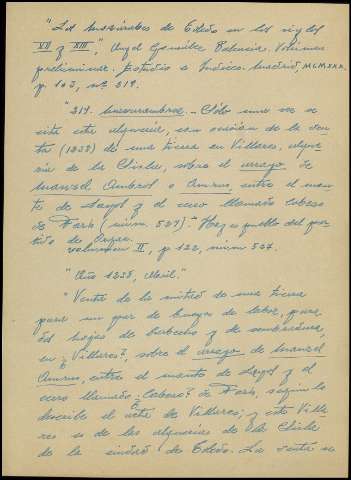 "Los Mozárabes de Toledo en los siglos
XII y XIII," Angel González Palencia. Volumen
preliminar. Estudio e Indices. Madrid, MCMXXX.
p. 103, nº 219.
"219. – Sólo una vez se
cita esta alquería, con ocasión de la ven-
ta (1238) de una tierra en Villares, alque-
ría de la Cisla, sobre el arroyo de
Manzel o Amrus entre el mon-
te de Layol y el cerro llamado cabeza
de Faris (núm. 527). – Hoy es pueblo del par-
tido de Orgaz.
volumen II, p 122, núm 527.
"Año 1238, Abril."
"Venta de la mitad de una tierra
para un par de bueyes de labor, para
dos hojas de barbecho y de sembradura,
en ¿Villares?, sobre el arroyo de Manzel
Amrus, entre el monte de Layol y el
cerro llamado ¿Cabeza? de Faris, según lo
describe el de Villares; y este Villa-
res es de las alquerías de la Cisla
de la ciudad de Toledo. La venta se